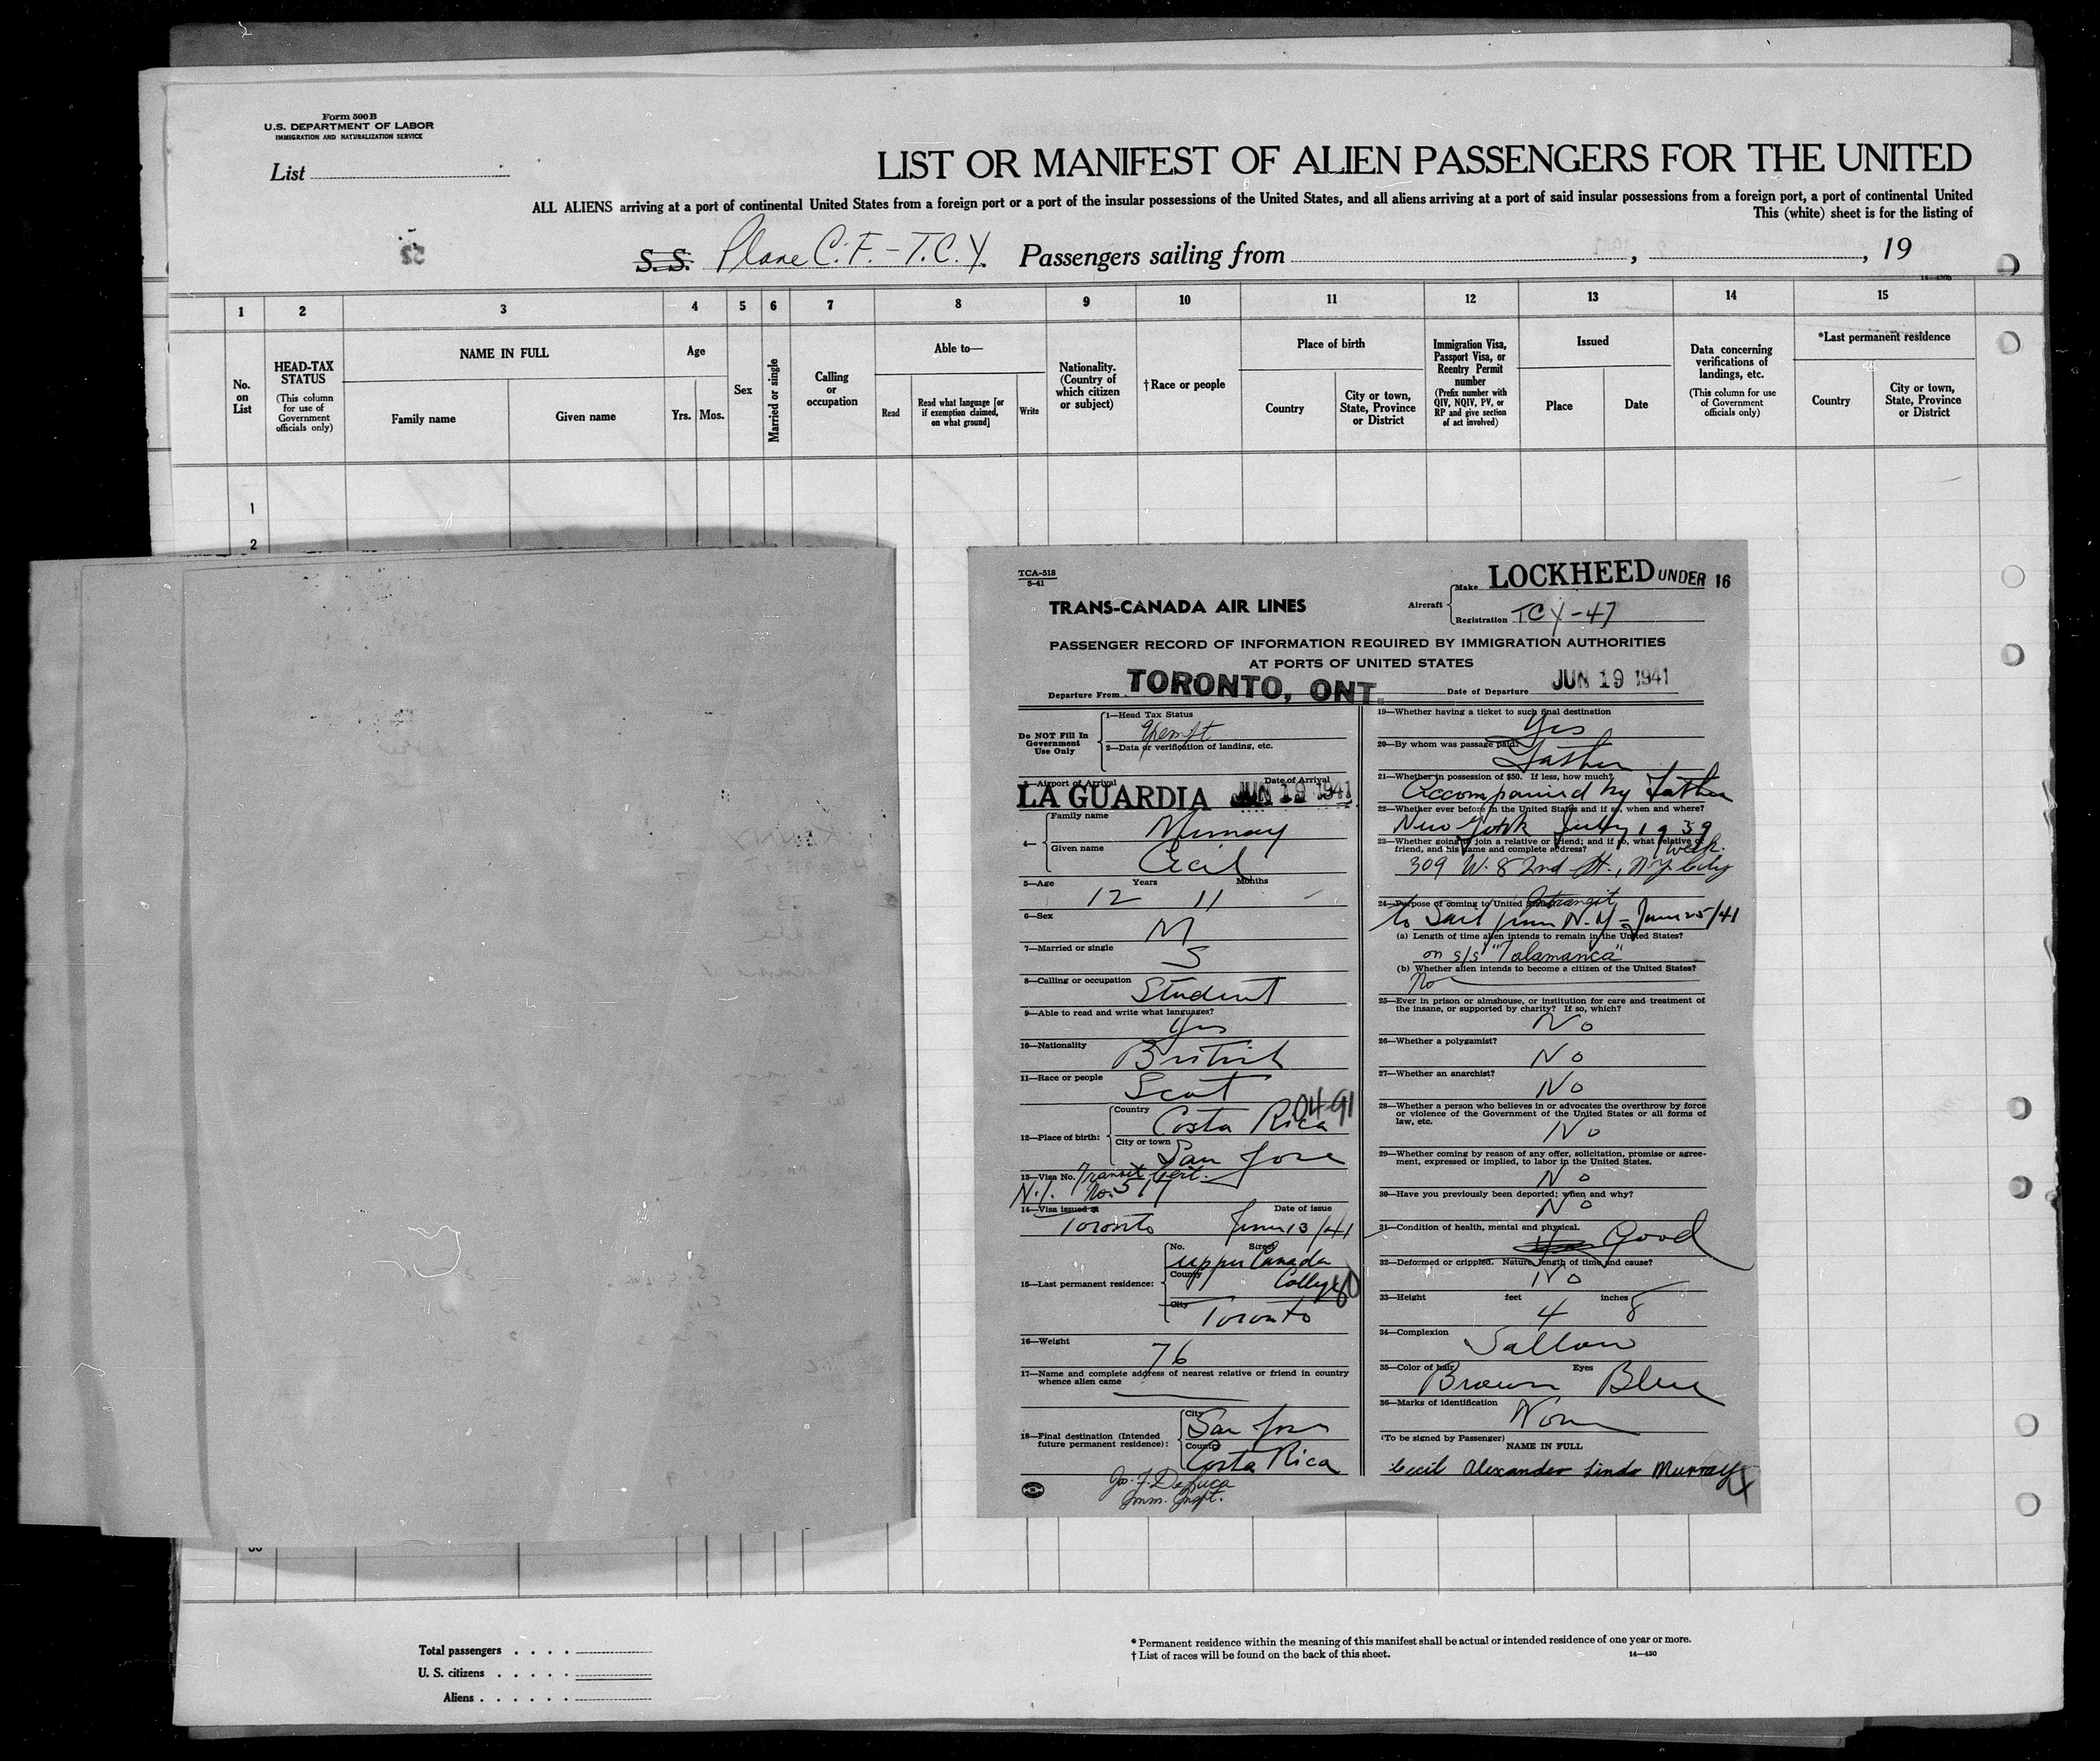 Form 500 B
U.S. DEPARTMENT OF LABOR
IMMIGRATION AND NATURALIZATION SERVICE
List
LIST OR MANIFEST OF ALIEN PASSENGERS FOR THE UNITED
ALL ALIENS arriving at a port of continental United States from a foreign port or a port of the insular possessions of the United States, and all aliens arriving at a port of said insular possessions from a foreign port, a port of continental United
This (white) sheet is for the listing of
S. S. Plane C.F.-T.C.Y. Passengers sailing from , , 19
1 2 3 4 5 6 7 8 9 10 11 12 13 14 15
No. on List
HEAD-TAX STATUS
(This column for use of Government officials only)
NAME IN FULL
Family name
Given name
Age
Yrs. Mos.
Sex
Married or single
Calling or occupation
Able to—
Read
Read what language [or if exemption claimed, on what ground]
Write
Nationality. (Country of which citizen or subject)
†Race or people
Place of birth
Country
City or town, State, Province or District
Immigration Visa, Passport Visa, or Reentry Permit number
(Prefix number with QIV, NQIV, PV, or RP and give section of act involved)
Issued
Place
Date
Data concerning verifications of landings, etc.
(This column for use of Government officials only)
*Last permanent residence
Country
City or town, State, Province or District
1
2
TCA-518
5-41
TRANS-CANADA AIR LINES
Aircraft
Make LOCKHEED UNDER 16
Registration TCY-47
PASSENGER RECORD OF INFORMATION REQUIRED BY IMMIGRATION AUTHORITIES
AT PORTS OF UNITED STATES
Departure From TORONTO, ONT. Date of Departure JUN 19 1941
Do NOT Fill In
Government
Use Only
1—Head Tax Status
Exempt
2—Data or verification of landing, etc.
3—Airport of Arrival Date of Arrival
LA GUARDIA JUN 19 1941
4—
Family name Murray
Given name Cecil
5—Age Years Months
12 11
6—Sex
M
7—Married or single
S
8—Calling or occupation Student
9—Able to read and write what languages?
Yes
10—Nationality British
11—Race or people Scot
12—Place of birth:
Country
Costa Rica 04-91
City or town
San Jose
13—Visa No. Transit Cert.
No. 517
14—Visa issued at Date of issue
Toronto June 13/41
15—Last permanent residence:
No. Street
Upper Canada
County
College
City
Toronto
16—Weight
76
17—Name and complete address of nearest relative or friend in country
whence alien came
18—Final destination (Intended
future permanent residence):
City
San Jose
Country
Costa Rica
Jos. F. DeLuca
Imm. Inspt.
19—Whether having a ticket to such final destination
Yes
20—By whom was passage paid?
Father
21—Whether in possession of $50. If less, how much?
Accompanied by Father
22—Whether ever before in the United States and if so, when and where?
New York July 1939
1 week.
23—Whether going to join a relative or friend; and if so, what relative or
friend, and his name and complete address?
309 W. 82nd St., N.Y. City
24—Purpose of coming to United States
Intransit
to Sail from N.Y. - June 25/41
(a) Length of time alien intends to remain in the United States?
on s/s "Talamanca"
(b) Whether alien intends to become a citizen of the United States?
No
25—Ever in prison or almshouse, or institution for care and treatment of
the insane, or supported by charity? If so, which?
No
26—Whether a polygamist?
No
27—Whether an anarchist?
No
28—Whether a person who believes in or advocates the overthrow by force
or violence of the Government of the United States or all forms of
law, etc.
No
29—Whether coming by reason of any offer, solicitation, promise or agree-
ment, expressed or implied, to labor in the United States.
No
30—Have you previously been deported; when and why?
No
31—Condition of health, mental and physical.
Good
32—Deformed or crippled. Nature, length of time and cause?
No
33—Height feet inches
4 8
34—Complexion
Sallow
35—Color of hair Eyes
Brown Blue
36—Marks of identification
None
(To be signed by Passenger)
NAME IN FULL
Cecil Alexander Lindo Murray
Total passengers
U. S. citizens
Aliens
* Permanent residence within the meaning of this manifest shall be actual or intended residence of one year or more.
† List of races will be found on the back of this sheet.
14—430